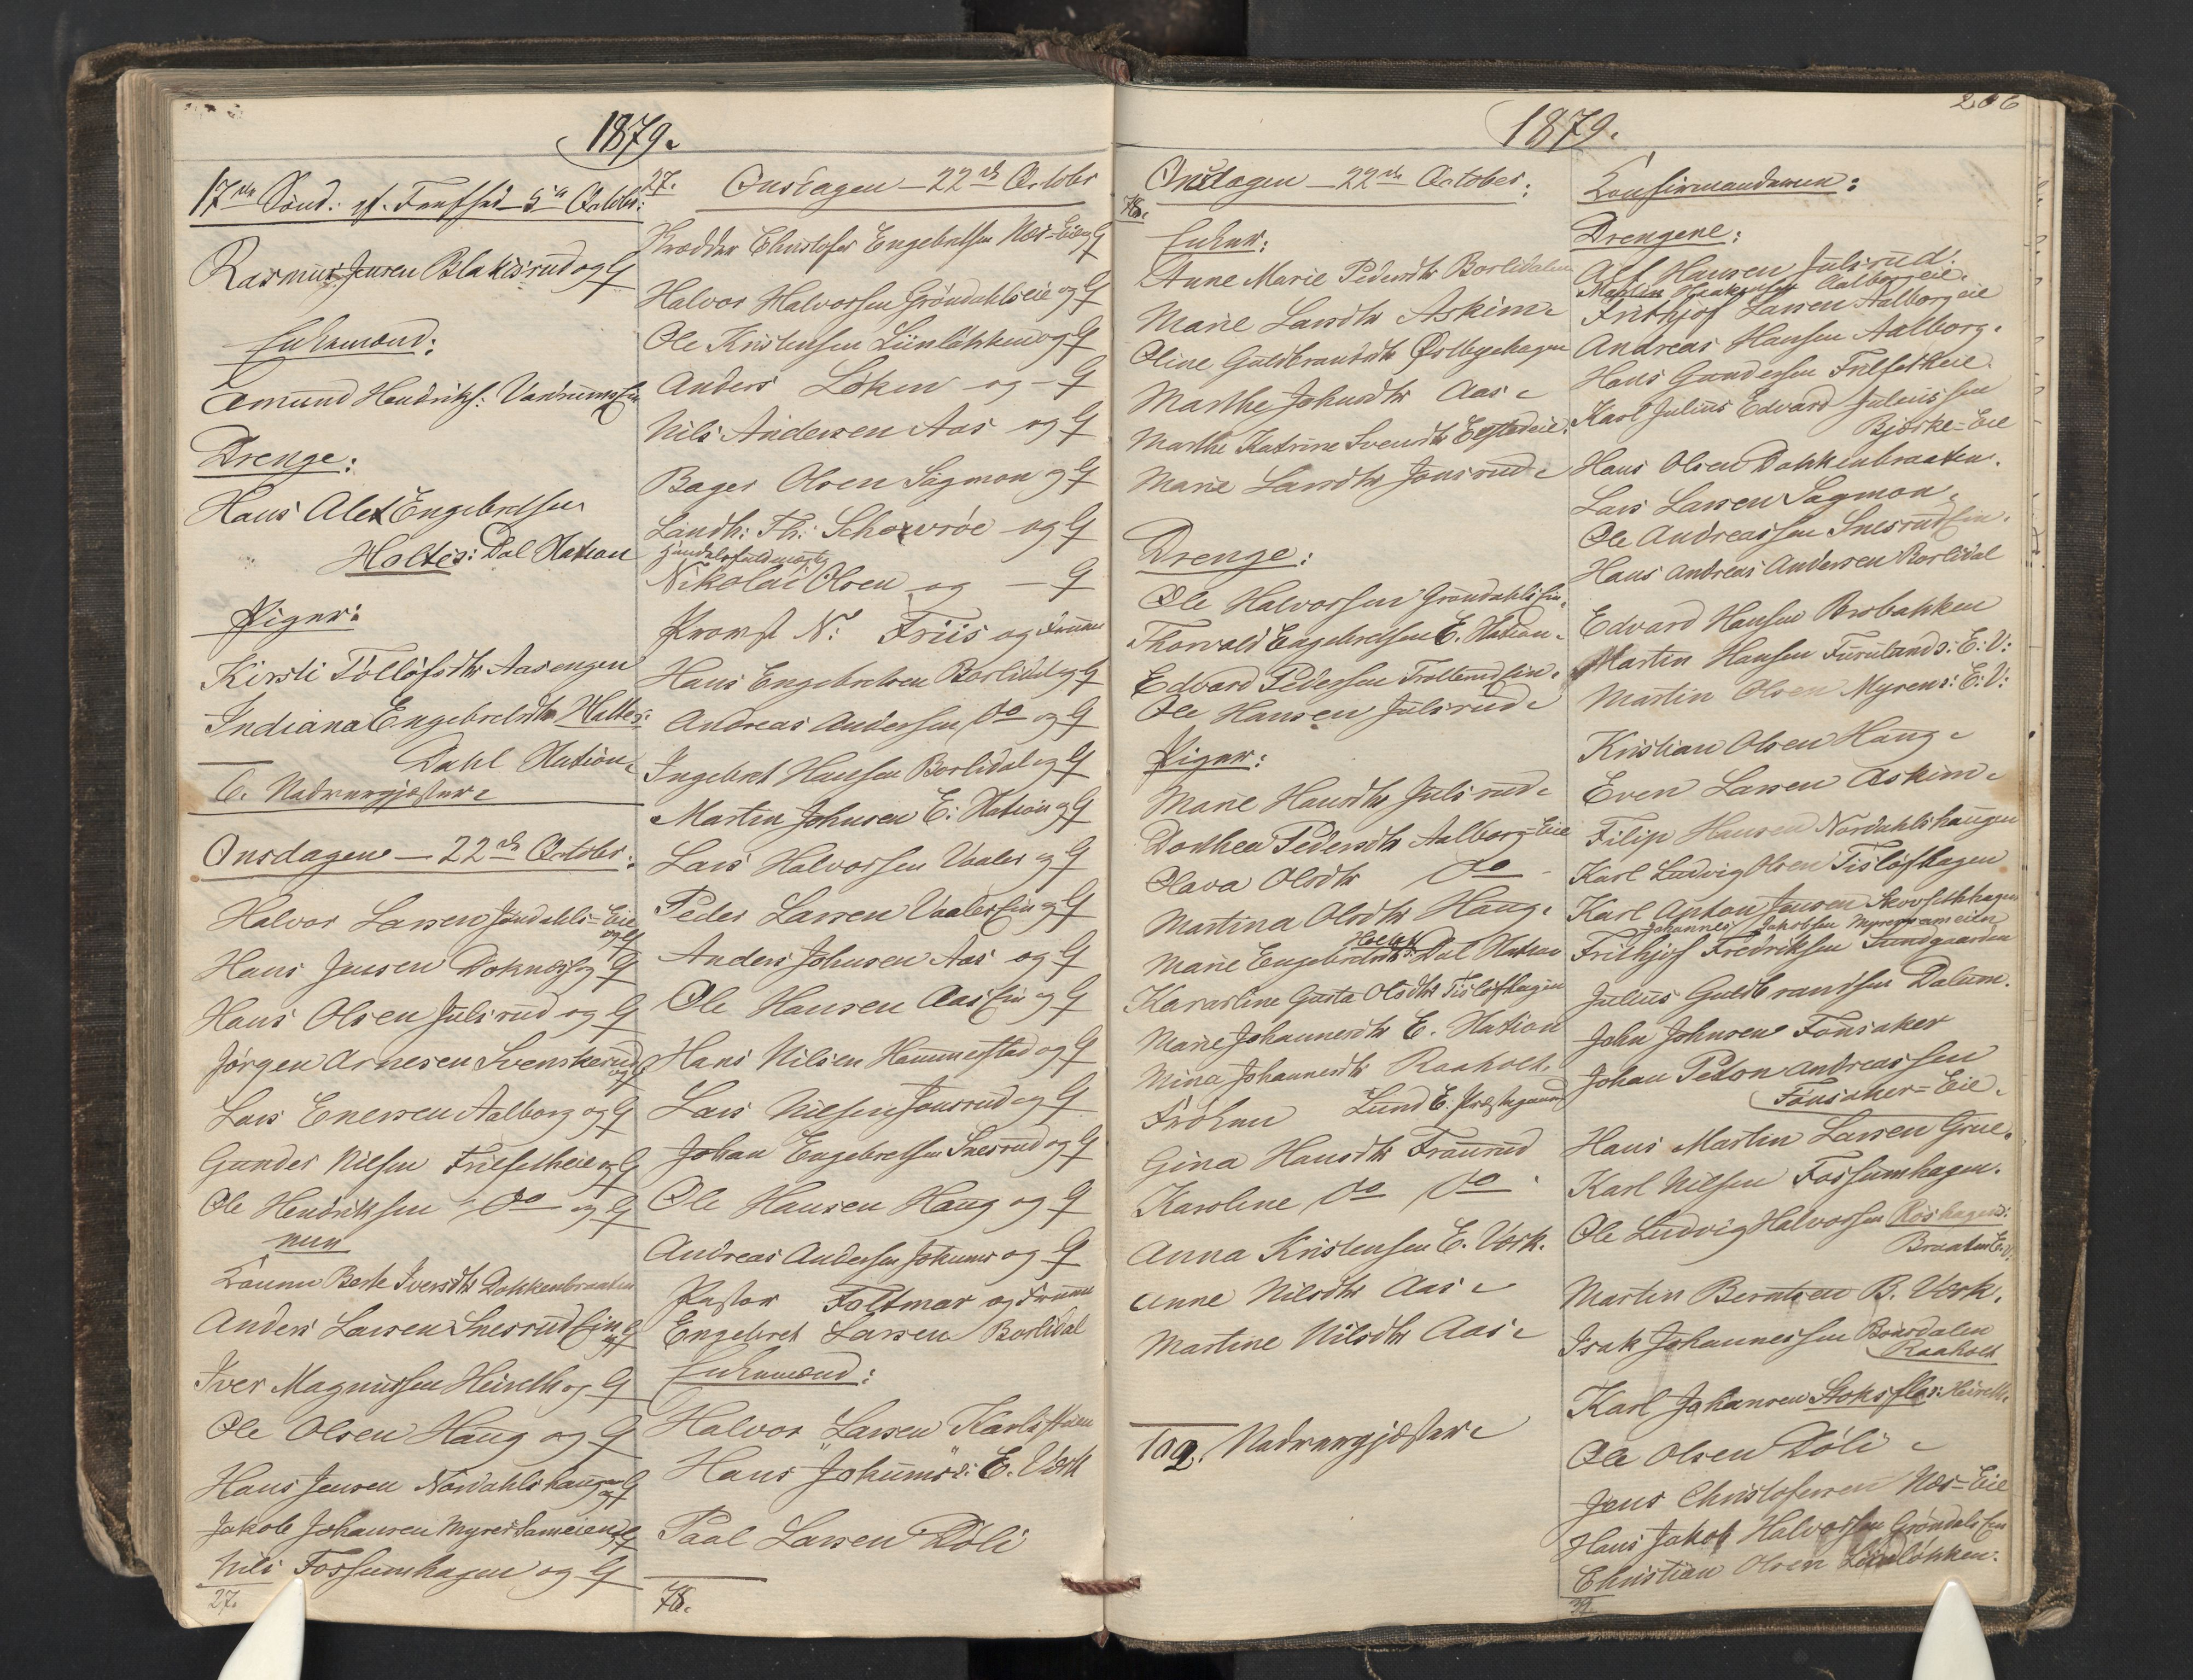 1879.
17de Sönd: ef. Trefhed 5te Octobr:
Rasmus Jensen Blakisrud og G
Enkemænd:
Emund Hendriks:
Drenge:
Hans Alex Engebretsen
Holtes: Dal Station
Piger:
Kirsti Tollofsdtr Aasengen
Indiana Engebretsdtr Holtes:
Dahl Station.
6. Nadvergjæster.
Onsdagen – 22de Octobr:
Halvor Larsen Jöndahls-Eie
og G
Hans Jensen Doknes og G
Hans Olsen Julsrud og G
Jörgen Arnesen Svenskerud
og G
Lars Enersen Aalborg og G
Gunder Nilsen Trilseteie og G
Ole Hendriksen do og G
Konen Berte Iversdtr Dokkenbraaten
Anders Larsen Snesrud Ein og G
Iver Magnussen Heiseth og G
Ole Olsen Haug og G
Hans Jensen Nordahlshaugen og G
Jakob Johansen Myrer Sameien og G
Nils Fossumhagen og G
27.
27.
Onsdagen – 22de Octobr
Skrædder Christofer Engebretsen Næs-Eie og G
Halvor Halvorsen Gröndahlseie og G
Ole Kristensen Liinlökken og G
Anders Löken og – G
Nils Andersen Aas og G
Bager Olsen Sagmon og G
Landh: Th: Schowröe og G
Handelsfuldmægtig
Nikolai Olsen og – G
Provst N: Friis og Frue
Hans Engebretsen Borlidal og G
Andreas Andersen do og G
Ingebret Hansen Borlidal og G
Martin Johnsen E: Station og G
Lars Halvorsen Vaaler og G
Peder Larsen Vaaler Ein og G
Anders Johnsen Aas og G
Ole Hansen Aas Ein og G
Hans Nilsen Hammerstad og G
Lars Nilsen Jonsrud og G
Johan Engebretsen Snesrud og G
Ole Hansen Haug og G
Andreas Andersen Jokums og G
Pastor Foltmar og Frue
Engebret Larsen Borlidal
Enkemænd:
Halvor Larsen Karlstuen
Hans Jokums: E. Værk
Paal Larsen Döli
78.
206
1879.
Onsdagen – 22de October.
78.
Enker:
Anne Marie Pedersdtr Borlidalen
Marie Larsdtr Askim.
Oline Guldbrandsdtr Östbyehagen
Marthe Johnsdtr Aas.
Marthe Katrine Svendsdtr
Marie Larsdtr Jonsrud.
Drenge:
Ole Halvorsen Gröndahls Ein.
Thorvald Engebretsen E. Station.
Edvard Pedersen Trollerud Ein.
Ole Hansen Julsrud.
Piger:
Marie Hansdtr Julsrud.
Dorthea Pedersdtr Aalborg-Eie
Olava Olsdtr do
Martina Olsdtr Haug.
Marie Engebretsdtr Holtes: Dal Station
Karoline Gusta Olsdtr Tislöfhagen
Marie Johannesdtr E. Station
Mina Johannesdtr Raaholt.
Fröken Lund E. Præstegaard
Gina Hansdtr Traurud
Karoline do do.
Anna Kristensen E. Værk.
Anne Nilsdtr Aas.
Martine Nilsdtr Aas.
102. Nadvergjæster.
Konfirmanderne:
Drengene:
Alf Hansen Julsrud.
Martin Haakensen Aalborgeie.
Frithjof Larsen Aalborgeie
Andreas Hansen Aalborg.
Hans Gundersen Trilseteie.
Karl Julius Edvard Juliussen
Björke-Eie
Hans Olsen Dokkenbraaten.
Lars Larsen Sagmon.
Ole Andreassen Snesrud Ein.
Hans Andreas Andersen Borlidal
Edvard Hansen Brobakken
Martin Hansen Furulands: E: V:
Martin Olsen Myrens: E: V:
Kristian Olsen Haug.
Even Larsen Askim.
Filip Hansen Nordahlshaugen
Karl Ludvig Olsen Tislöfhagen
Karl Anton Jensen
Johannes Jakobsen Myrer Sameien
Frithjof Fredriksen Sundgaarden
Julius Guldbrandsen Dalum.
John Johnsen Fonsaker
Johan Peton Andreassen
Fonsaker-Eie.
Hans Martin Larsen Grue.
Karl Nilsen Fossumhagen.
Ole Ludvig Halvorsen Röshagen:
Braaten E. V.
Martin Berntsen B. Værk.
Isak Johannessen Bönsdalen
Raaholt
Karl Johansen Stoksflos: Heiseth.
Ole Olsen Döli.
Jens Christofersen Næs-Eie
Hans Jakob Halvorsen Gröndals Ein
Christian Olsen Liinlökken.